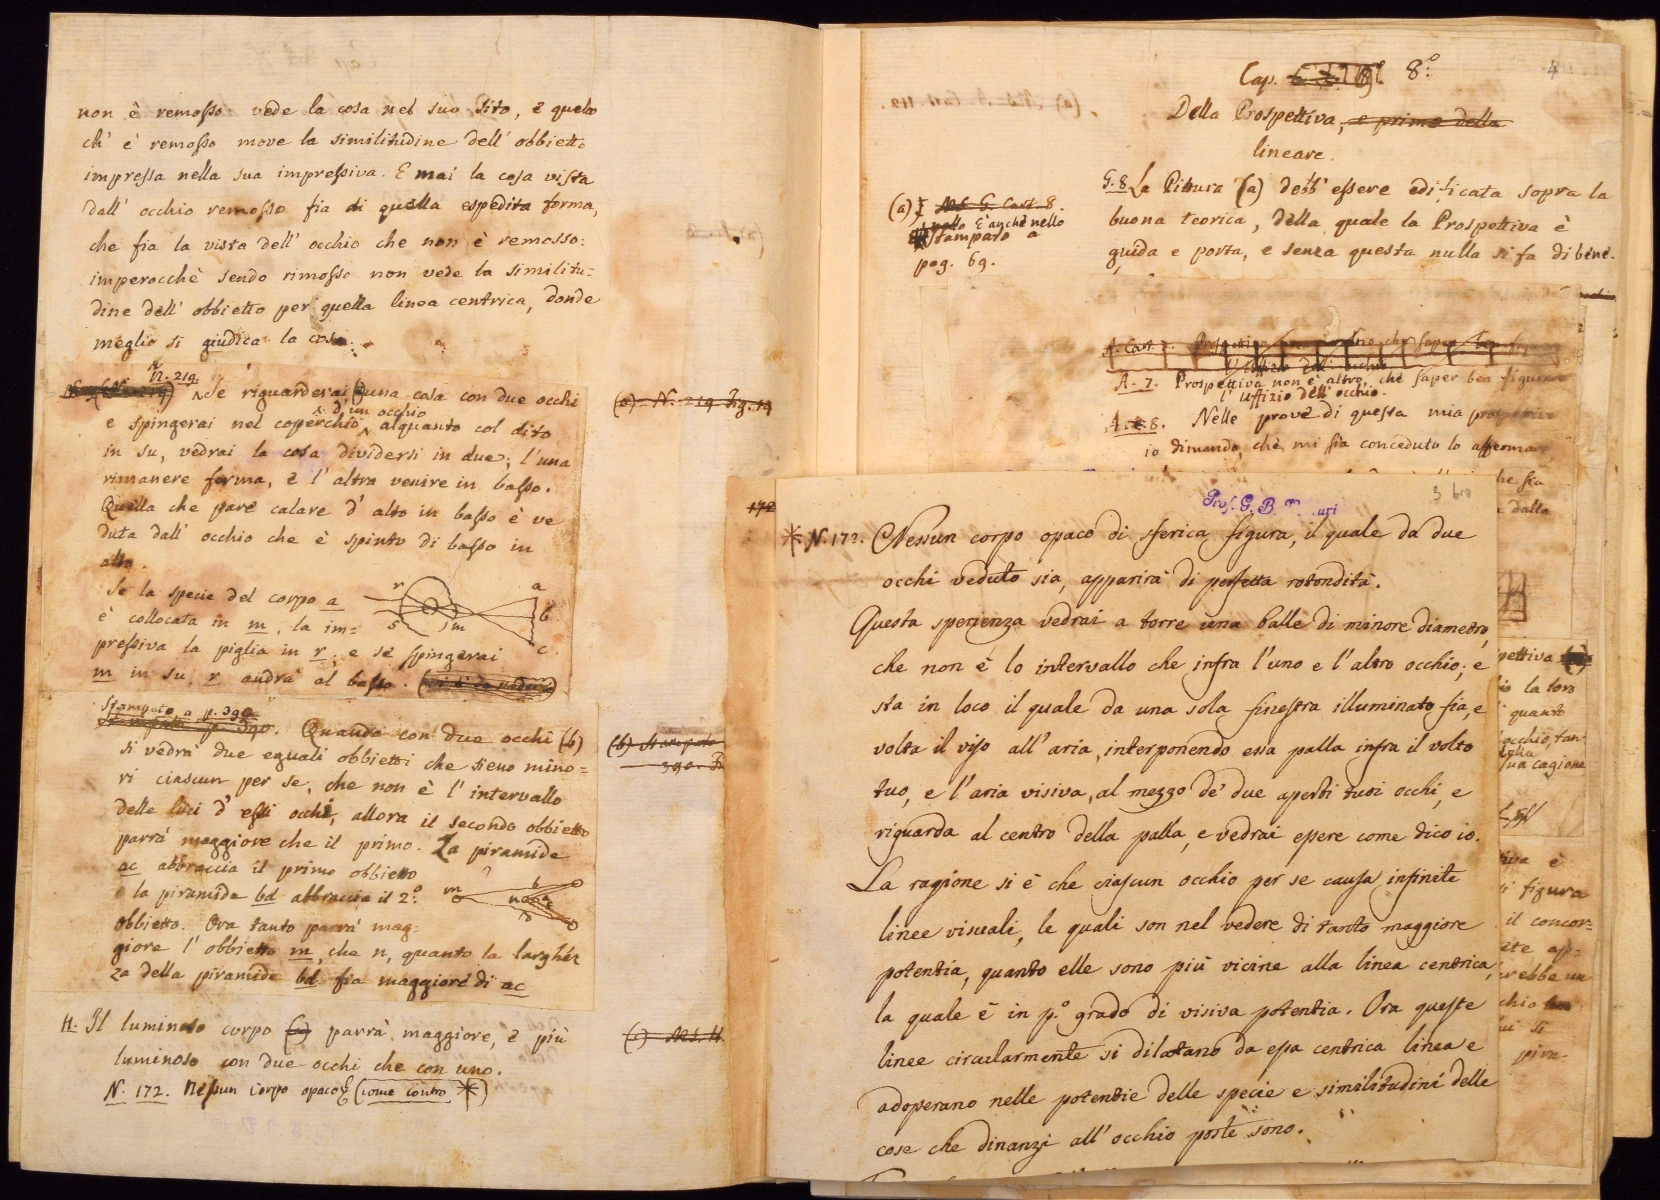 non è remosso vede la cosa nel suo sito, e quelo
ch' è remosso move la similitudine dell' obbietto
impressa nella sua impressiva. E mai la cosa vista
dall' occhio remosso fia di quella espedita forma,
che fia la vista dell' occhio che non è remosso:
imperocchè sendo rimosso non vede la similitu=
dine dell' obbietto per quella linea centrica, donde
meglio si giudica la cosa.
N. 219.
Se riguarderai una cosa con due occhi
e spingerai nel coperchio d' un occhio alquanto col dito
in su, vedrai la cosa dividersi in due; l'una
rimanere ferma, e l' altra venire in basso.
Quella che pare calare d' alto in basso è ve
duta dall' occhio che è spinto di basso in
alto.
Se la specie del corpo a
è collocata in m, la im=
pressiva la piglia in r, e se spingerai
m in su, r andrà al basso.
r a b c s m
(a) N. 219 Fig. 19
Stampato a p. 390
Quando con due occhi (b)
si vedrà due eguali obbietti che sieno mino=
ri ciascun per se, che non è l' intervallo
delle luci d' essi occhi, allora il secondo obbietto
parrà maggiore che il primo. La piramide
ac abbraccia il primo obbietto
e la piramide bd abbraccia il 2.º
obbietto. Ora tanto parrà mag=
giore l' obbietto m, che n, quanto la larghez
za della piramide bd fia maggiore di ac
m b n
(b) Stampato
390.
H. Il luminoso corpo parrà maggiore, e più
luminoso con due occhi che con uno.
(c) MS. H
N. 172. Nessun corpo opaco & (come contro *)
Cap. 8º:
4
Della Prospettiva, e prima della
lineare.
G. 8 La Pittura (a) debb' essere edificata sopra la
buona teorica, della quale la Prospettiva è
guida e porta, e senza questa nulla si fa di bene.
(a) MS G. Cart. 8.
E' anche nello
stampato a
pag. 69.
A. 7. Prospettiva non è altro, che saper ben figurare
l' uffizio dell' occhio.
A. 8. Nelle prove di questa mia prospettiva
io dimando, che mi sia conceduto lo affermare
172
Prof. G. B.
3 bis
* N. 172. Nessun corpo opaco di sferica figura, il quale da due
occhi veduto sia, apparirà di perfetta rotondità.
Questa sperienza vedrai a torre una balle di minore diametro,
che non è lo intervallo che infra l'uno e l'altro occhio; e
sta in loco il quale da una sola finestra illuminato fia, e
volta il viso all' aria, interponendo essa palla infra il volto
tuo, e l'aria visiva, al mezzo de' due aperti tuoi occhi, e
riguarda al centro della palla, e vedrai essere come dico io.
La ragione si è che ciascun occhio per se causa infinite
linee visuali, le quali son nel vedere di tanto maggiore
potentia, quanto elle sono più vicine alla linea centrica,
la quale è in p.º grado di visiva potentia. Ora queste
linee circularmente si dilatano da essa centrica linea e
adoperano nelle potentie delle specie e similitudini delle
cose che dinanzi all' occhio poste sono.
he sia
dalla
pettiva
io la tors
quanto
occhio, tan
della
sua cagione
tiva è
figura
il concor=
ap=
rebbe un
chio
si
pira-